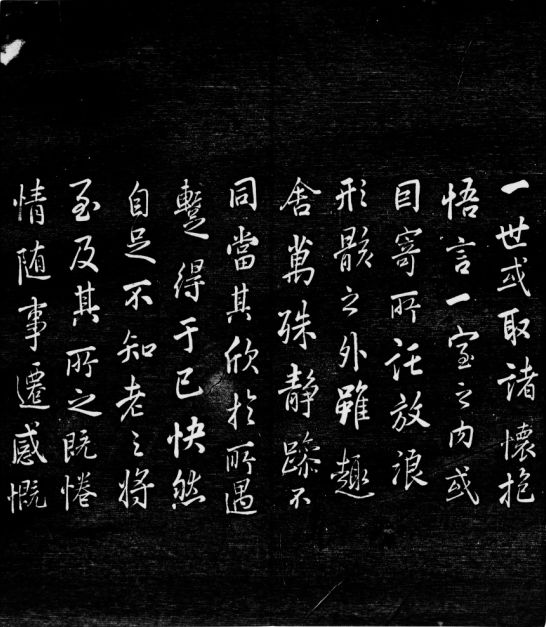 一世或取諸懷抱
悟言一室之内或
因寄所託放浪
形骸之外雖趣
舍萬殊静躁不
同當其欣於所遇
蹔得于己快然
自足不知老之將
至及其所之既惓
情随事遷感慨